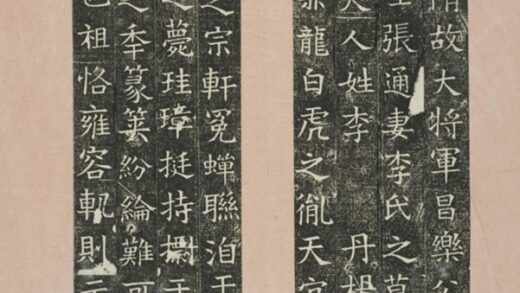 隋故大将軍昌樂公
張通妻李氏之墓
人姓李 丹楊
龍白虎之胤天官
之宗軒冕蟬聯洎于
之薨珪璋挺持
之秊篆筭紛綸難可
祖恪雍容軌則